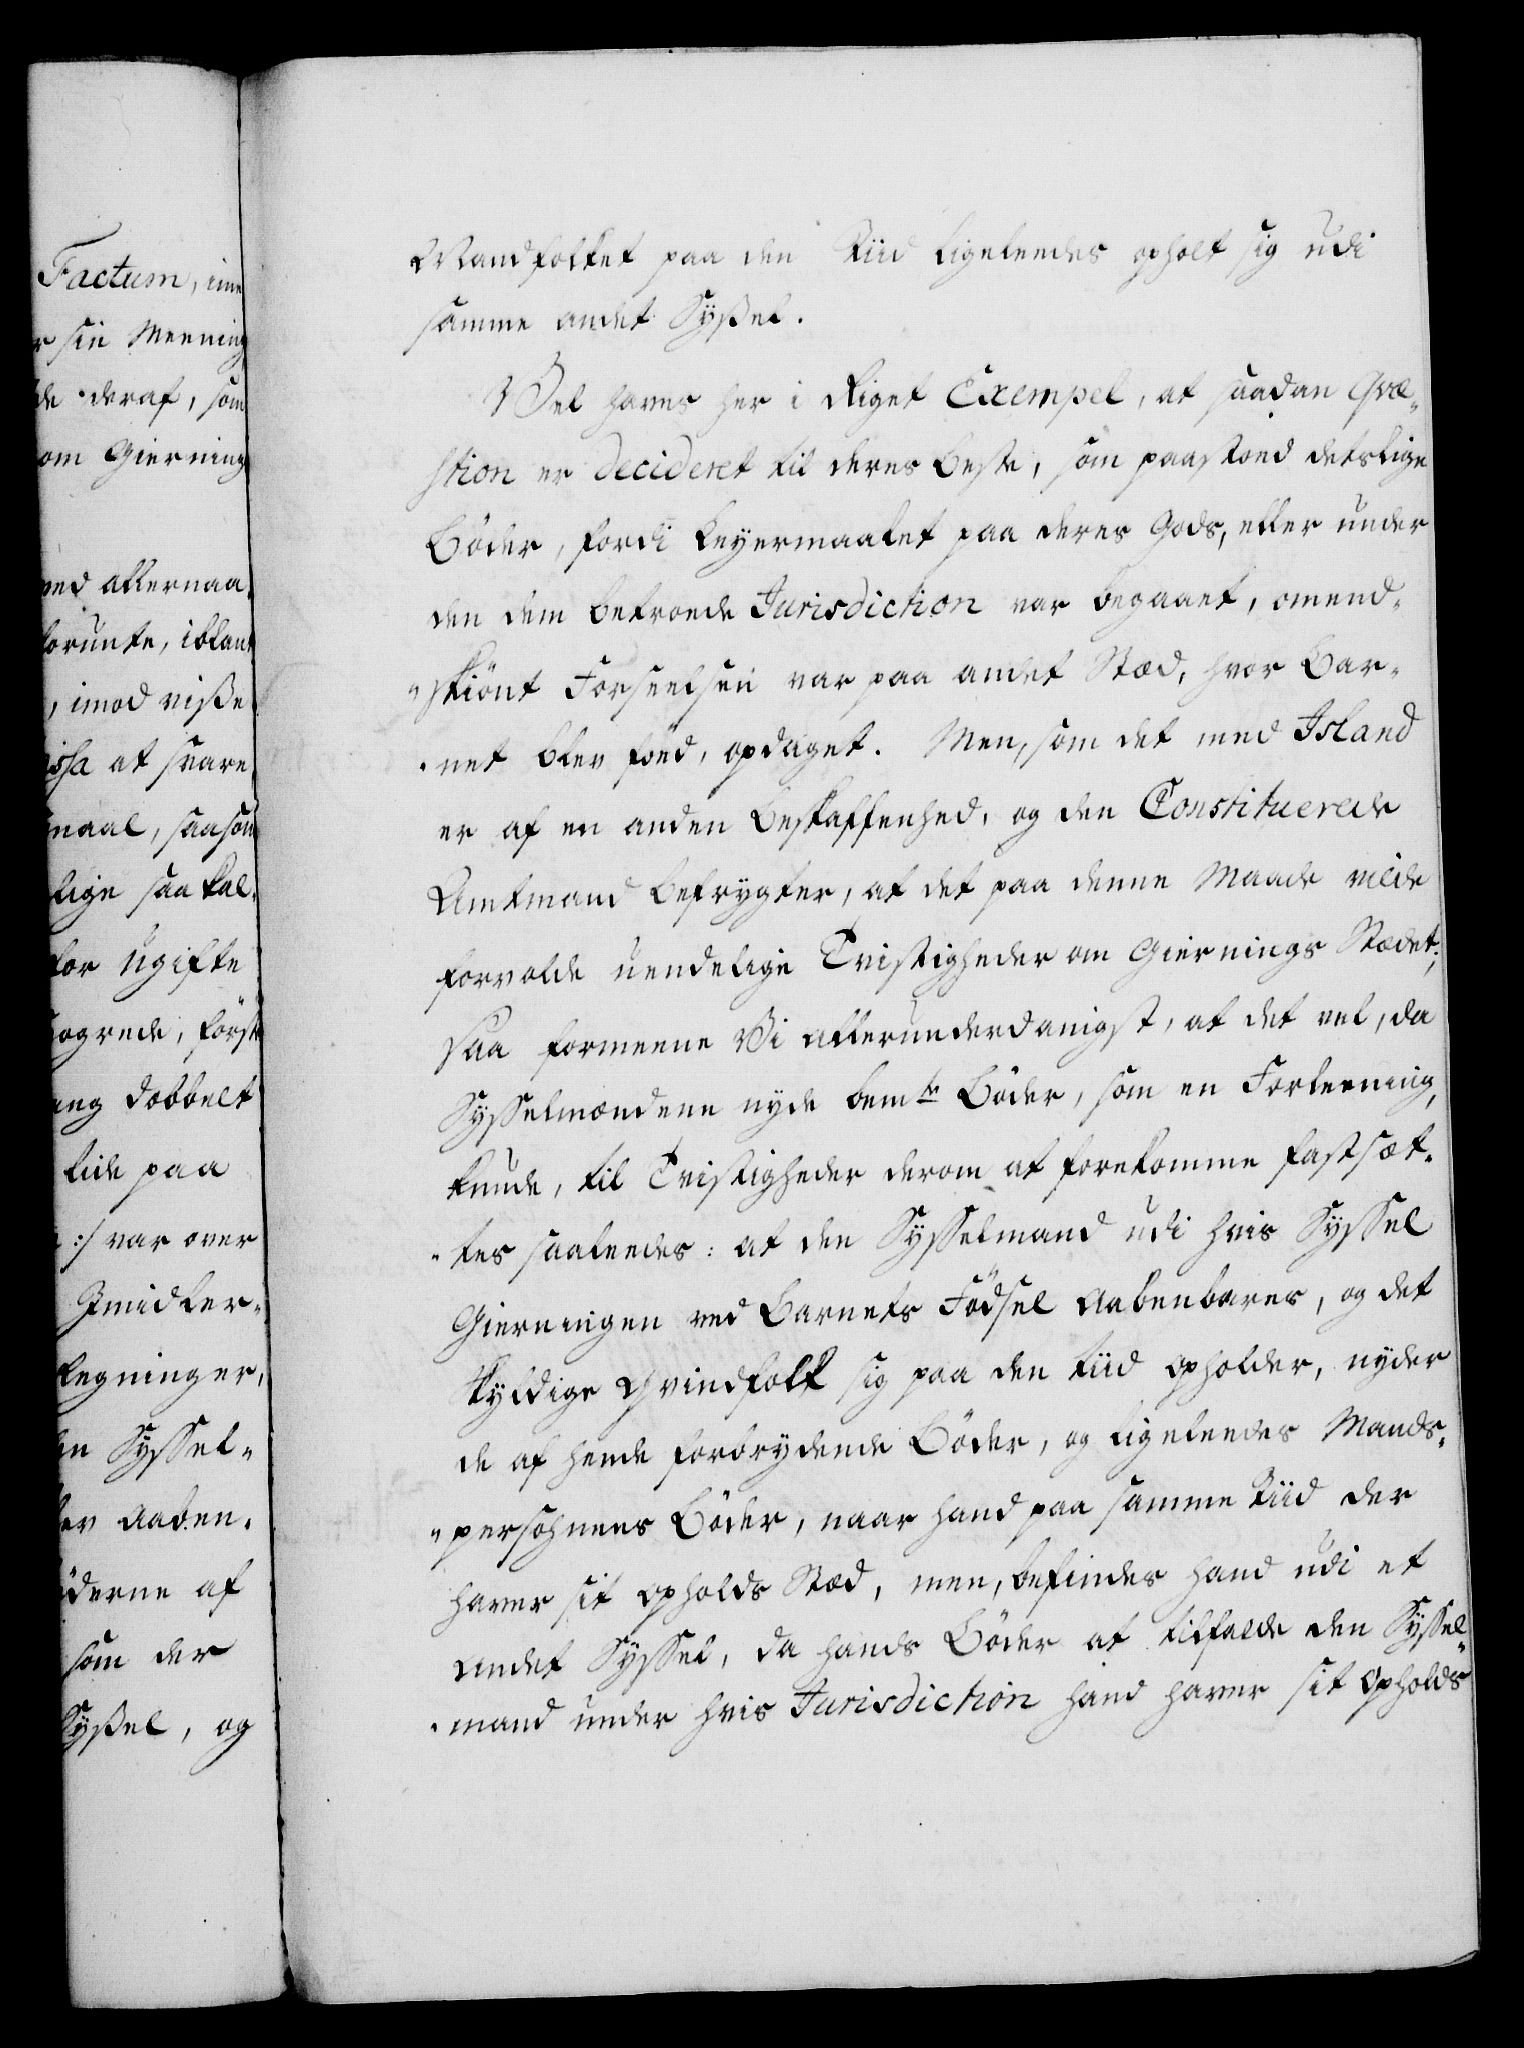 Factum, ime
r sin Meening
de deraf, som
om Giernings
ved allernaa
forunte, iblant
, imod visse
issa at svare
maal, saasom
lige saa kal¬
for ugifte
sogrede, först
ang dobbelt
tide paa
:/ var over
Imidler¬
legninger,
en Syssel¬
lev aaben¬
öderne af
som der
Syssel, og
Mandfolket paa den Tiid ligeledes opholt sig udi
samme andet Syssel.
Vel haves her i Riget Exempel, at saadan Qvæ¬
stion er decideret til deres beste, som paastoed deslige
Böder, fordi Leyermaalet paa deres Gods, eller under
den dem betroede Jurisdiction var begaaet, omend¬
skiönt Forseelsen var paa andet Stæd, hvor Bar¬
net blev föed, opdaget. Men, som det med Island
er af en anden Beskaffenhed, og den Constituerede
Amtmand befrygter, at det paa denne Maade vilde
forvolde uendelige Tvistigheder om Giernings Stædet;
saa formeene Vi allerunderdanigst, at det vel, da
Sysselmændene nyde bemte Böder, som en Forleening,
kunde, til Tvistigheder derom at forekomme fastsæt¬
tes saaledes: at den Sysselmand udi hvis Syssel
Gierningen ved Barnets Födsel aabenbares, og det
skyldige Qvindfolk sig paa den tiid opholder, nyder
de af hende forbrydende Böder, og ligeledes Mands¬
persohnens Böder, naar hand paa samme Tiid der
haver sit Opholds Stæd, men, befindes hand udi et
andet Syssel, da hands Böder at tilfalde den Syssel¬
mand under hvis Jurisdiction hand haver sit Opholds